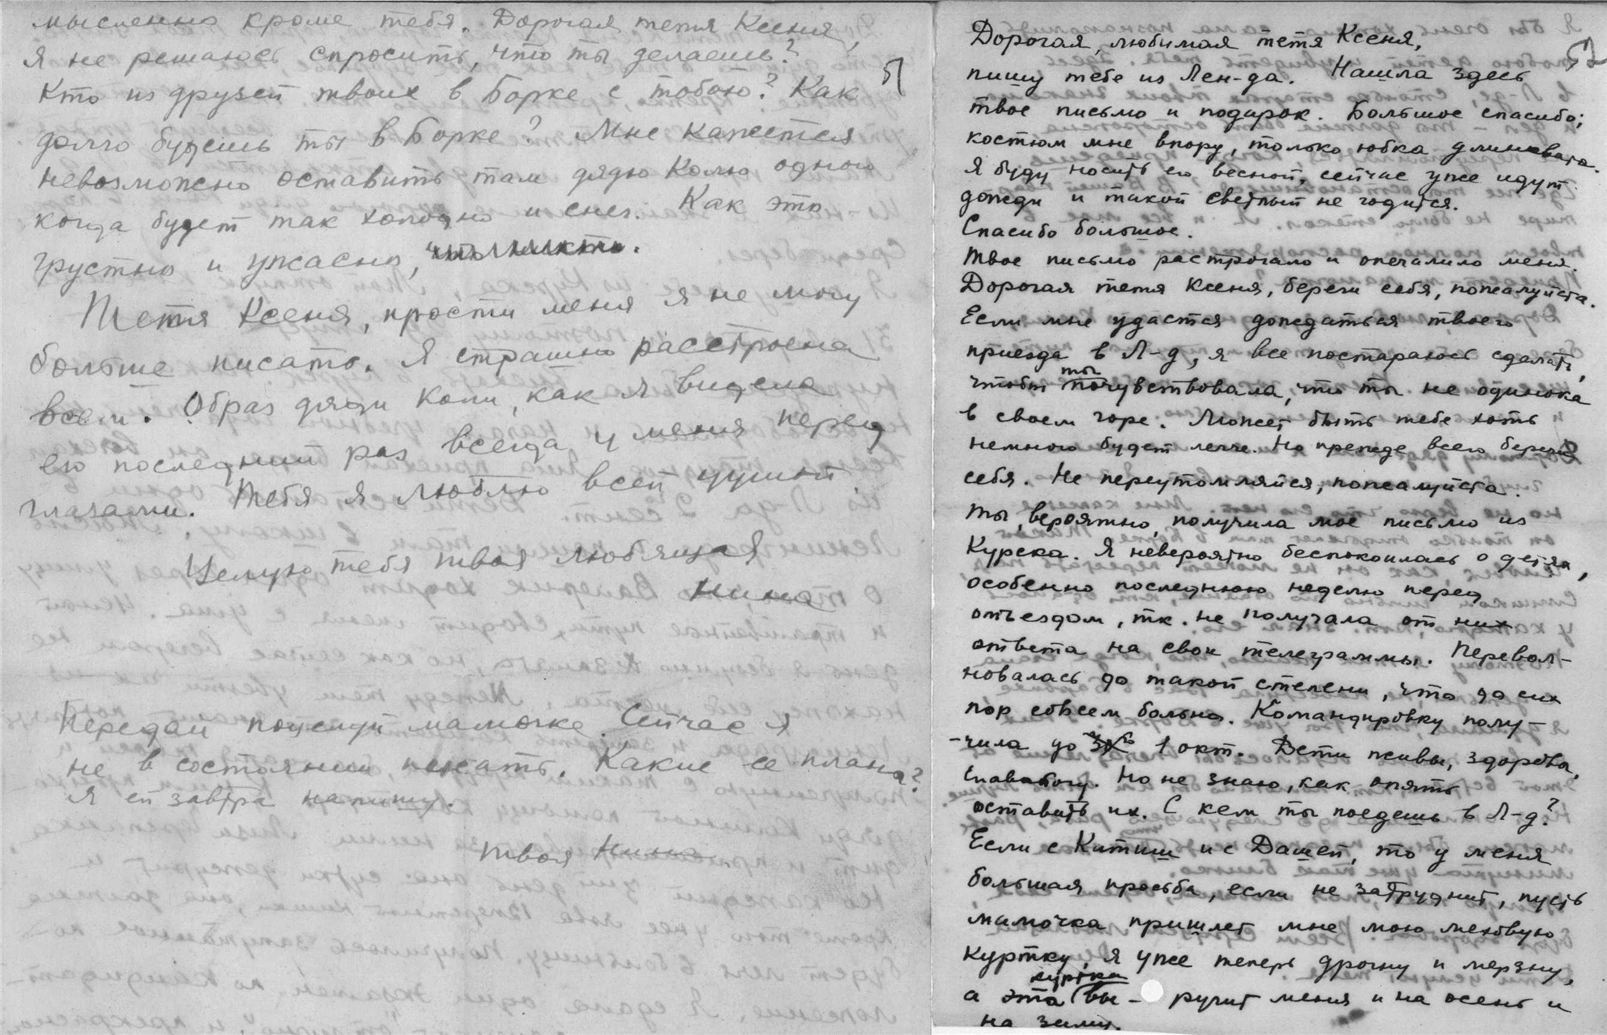 мысленно кроме тебя. Дорогая тетя Ксеня,
я не решаюсь спросить, что ты делаешь?
51
Кто из друзей твоих в Борке с тобою? Как
долго будешь ты в Борке? Мне кажется
невозможно оставить там дядю Колю одного
когда будет так холодно и снег. Как это
грустно и ужасно,
Тетя Ксеня, прости меня я не могу
больше писать. Я страшно расстроена
всем. Образ дяди Коли, как я видела
его последний раз всегда у меня перед
глазами. Тебя я люблю всей душой.
Целую тебя твоя любящая
Нина
Передай поцелуй мамочке. Сейчас я
не в состоянии писать. Какие ее планы?
Я ей завтра напишу.
Твоя Нина
52
Дорогая, любимая тетя Ксеня,
пишу тебе из Лен-да. Нашла здесь
твое письмо и подарок. Большое спасибо;
костюм мне впору, только юбка длинновата.
Я буду носить его весной, сейчас уже идут
дожди и такой светлый не годится.
Спасибо большое.
Твое письмо растрогало и опечалило меня.
Дорогая тетя Ксеня, береги себя, пожалуйста.
Если мне удастся дождаться твоего
приезда в Л-д, я все постараюсь сделать,
чтобы ты почувствовала, что ты не одинока
в своем горе. Может быть тебе хоть
немного будет легче. Но прежде всего береги
себя. Не переутомляйся, пожалуйста.
Ты, вероятно, получила мое письмо из
Курска. Я невероятно беспокоилась о детях,
особенно последнюю неделю перед
отъездом, тк. не получала от них
ответа на свои телеграммы. Перевол-
новалась до такой степени, что до сих
пор совсем больна. Командировку полу-
-чила до 1 окт. Дети живы, здоровы,
слава богу. Но не знаю, как опять
оставить их. С кем ты поедешь в Л-д?
Если с Катиш и с Дашей, то у меня
большая просьба, если не затруднит, пусть
мамочка пришлет мне мою меховую
куртку, я уже теперь дрожу и мерзну,
а эта куртка вы- ручит меня и на осень и
на зиму.